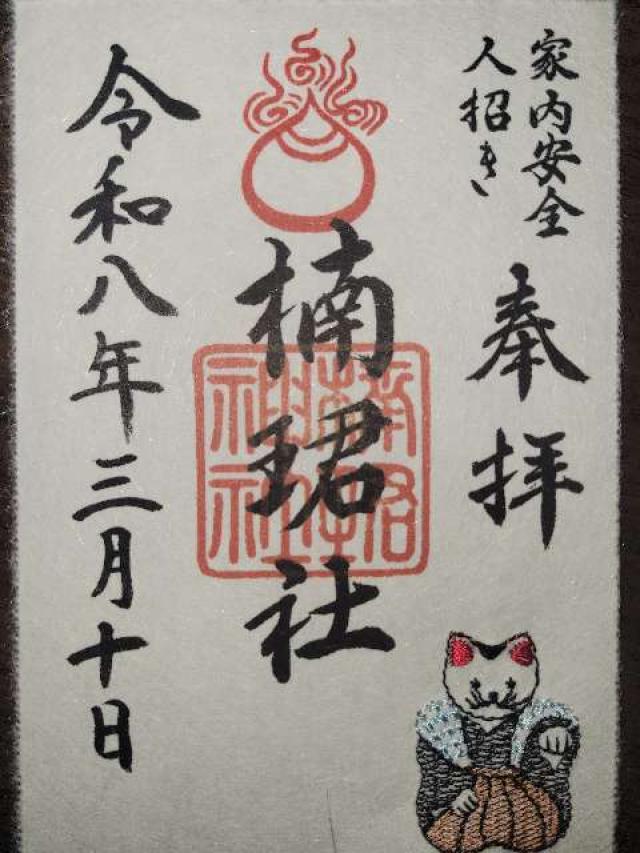 家内安全
人招き
奉拝
楠珺社
令和八年三月十日